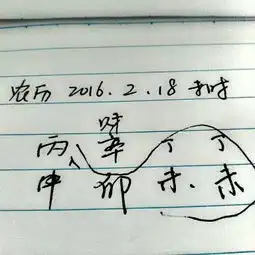 农历 2016.2.18 未时
丙 辛 丁 丁
申 卯 未. 未